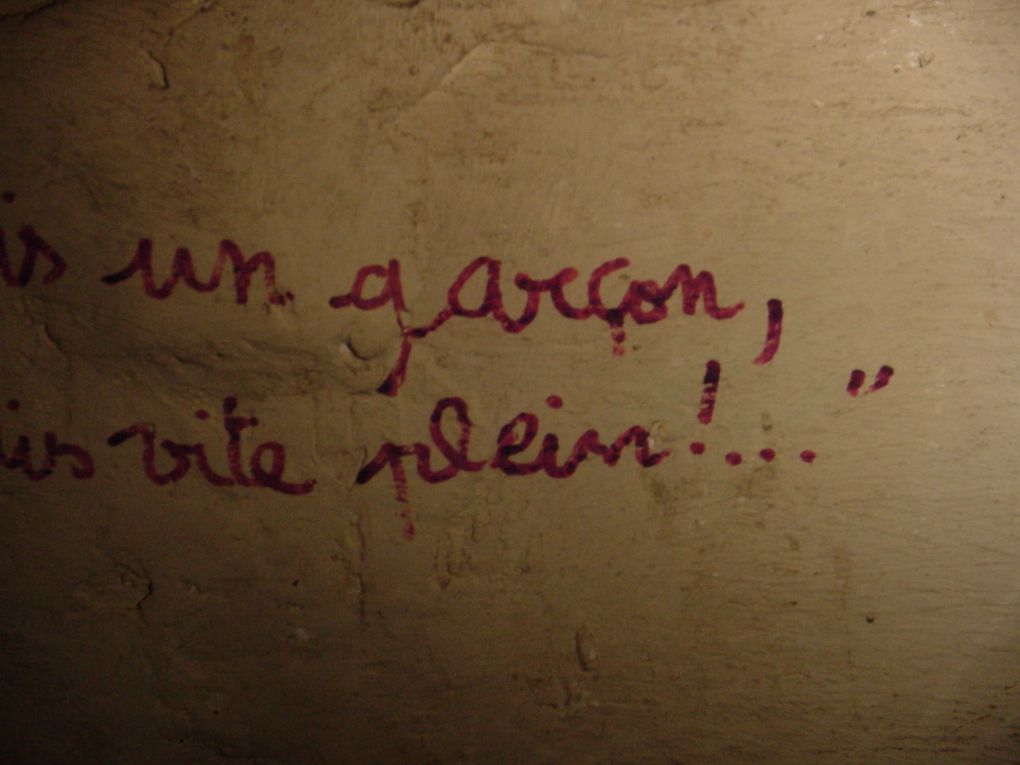 is un garçon,
uis vite plein!..."